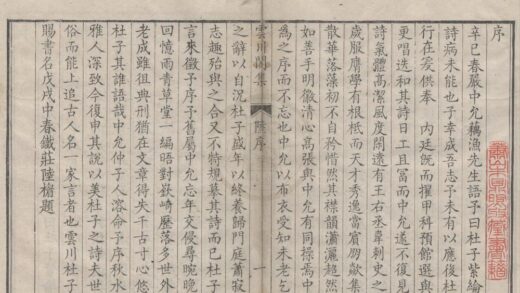 序
辛巳春嚴中允藕漁先生語予曰杜子紫綸
詩病未能也子幸成吾志予未有以應後杜
行在愛供奉 內廷旣而擢甲科預館選與
更唱迭和其詩日工且富而中允遂不復見
詩氣體高潔風度閒遠有王右丞韋刺史之
歲服膺學有根柢而天才秀逸當賓朋歡集
散華落藻初不自矜惜然其襟韻瀟灑超然
如善手明徽清心高張與中允有同操焉中
爲之序而不忘也中允以布衣受知未老乞
雲川閣集 陸序 一
之辭以自沉杜子盛年以終養歸門庭蕭寂
志趣殆與之合又不特規摹其詩而已杜子
言來徵子序予舊屬中允忘年交尋晼晚
回憶雨青草堂一編晤對嶔崎歷落多世外
老成雖徂典刑猶在文章得失千古寸心悠
杜子其誰語哉中允仲子人溶命予序秋水
雅人深致今復申其說以美杜子之詩夫世
俗而能上追古人名一家言者也雲川杜子
賜書名戊戌中春鐵莊陸楣題